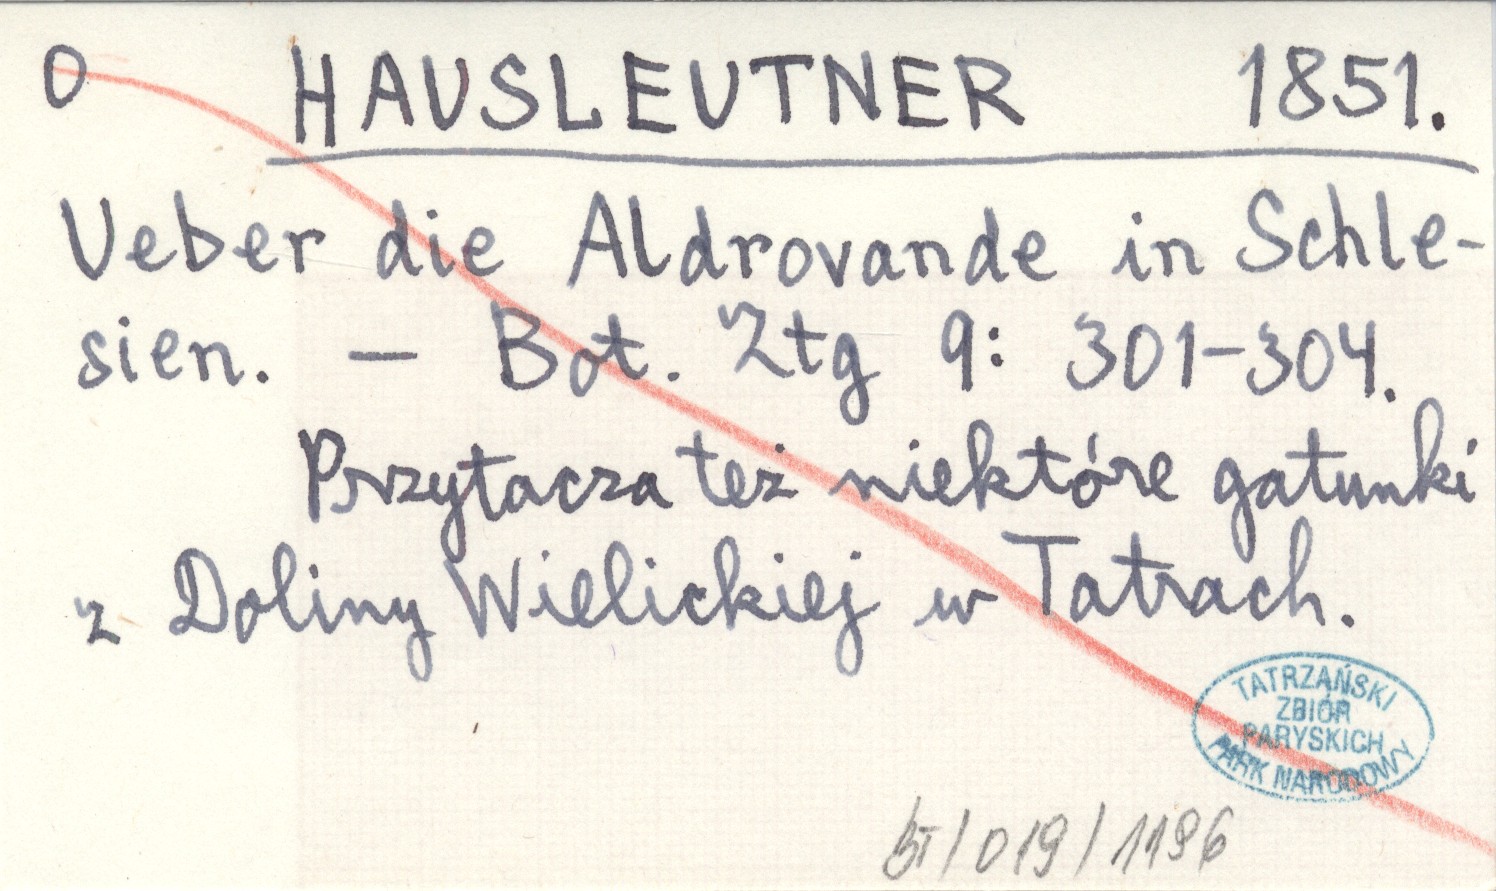 O HAUSLEUTNER 1851.
Ueber die Aldrovande in Schle-
sien. — Bot. Ztg 9: 301-304.
Przytacza też niektóre gatunki
z Doliny Wielickiej w Tatrach.
TATRZAŃSKI
ZBIÓR
PARYSKICH
PARK NARODOWY
/019/1196